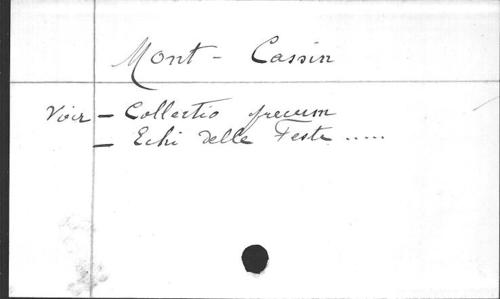 Mont - Cassin
Voir - Collectio precum
- Echi delle Feste .....